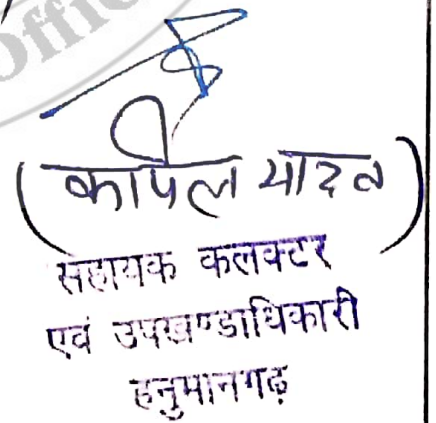 Offic
(कपिल यादव)
सहायक कलक्टर
एवं उपखण्डाधिकारी
हनुमानगढ़